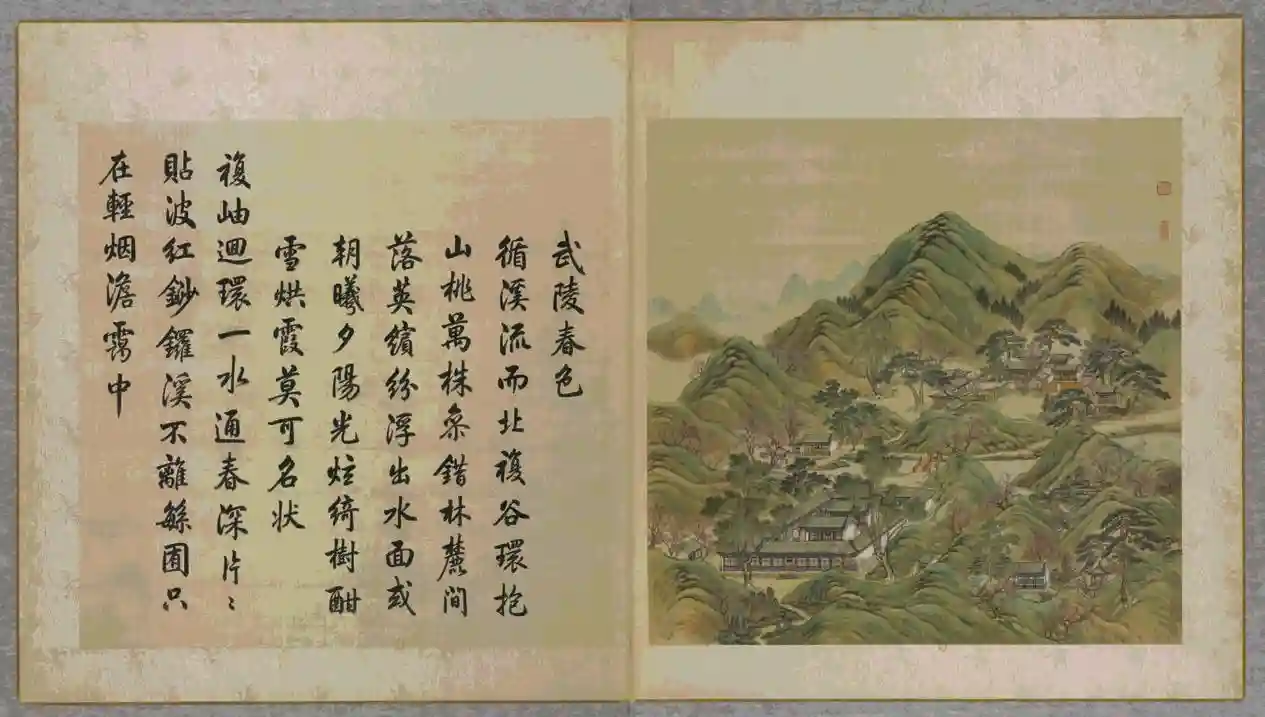 武陵春色
循溪流而北複谷環抱
山桃萬株叅錯林麓間
落英繽紛浮出水面或
朝曦夕陽光炫綺樹酣
雪烘霞莫可名状
複岫迴環一水通春深片〻
貼波紅鈔鑼溪不離繇圃只
在輕烟澹靄中